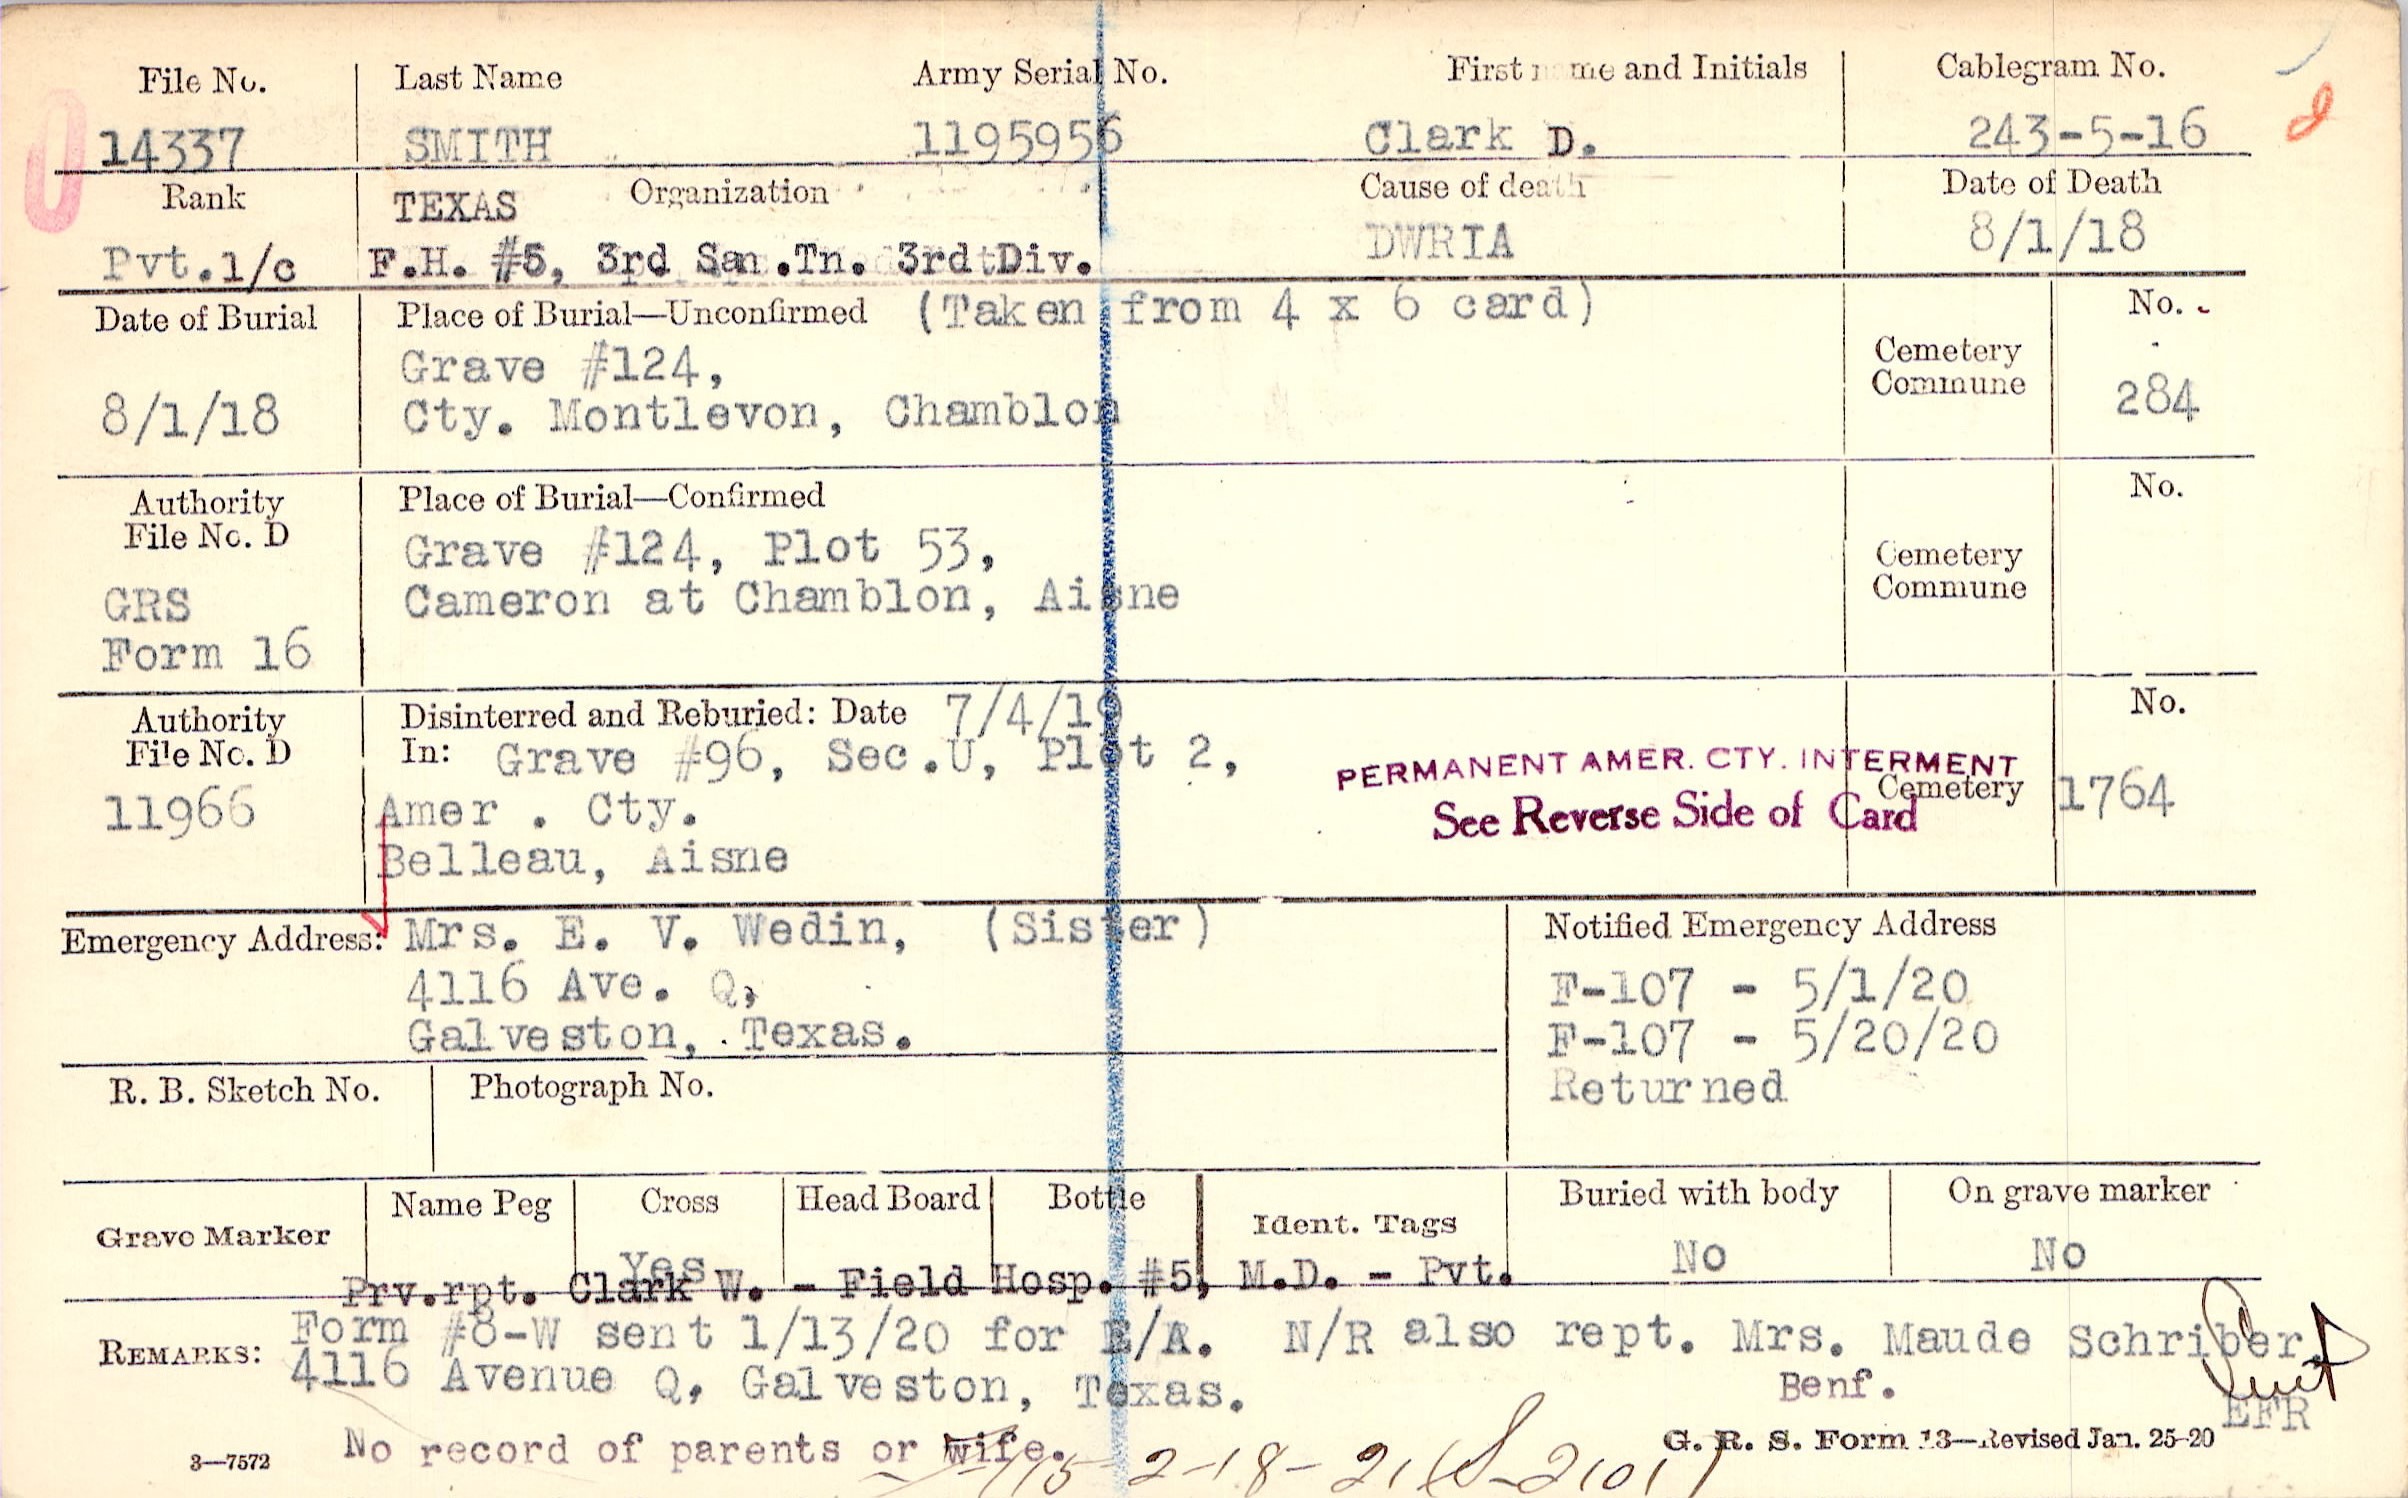 File No. Last Name Army Serial No. First name and Initials Cablegram No.
14337 SMITH 1195956 Clark D. 243-5-16
Rank TEXAS Organization Cause of death Date of Death
Pvt.1/c F.H. #5, 3rd San.Tn. 3rd Div. DWRIA 8/1/18
Date of Burial Place of Burial—Unconfirmed (Taken from 4 x 6 card) No.
Grave #124, Cemetery
Commune
8/1/18 Cty. Montlevon, Chamblon 284
Authority Place of Burial—Confirmed No.
File No. D Grave #124, Plot 53, Cemetery
GRS Cameron at Chamblon, Aisne Commune
Form 16
Authority Disinterred and Reburied: Date 7/4/19 No.
File No. D In: Grave #96, Sec.U, Plot 2, PERMANENT AMER. CTY. INTERMENT
11966 Amer. Cty. See Reverse Side of Card Cemetery 1764
Belleau, Aisne
Emergency Address: Mrs. E. V. Wedin, (Sister) Notified Emergency Address
4116 Ave. Q, F-107 - 5/1/20
Galveston, Texas. F-107 - 5/20/20
R. B. Sketch No. Photograph No. Returned
Grave Marker Name Peg Cross Head Board Bottle Ident. Tags Buried with body On grave marker
Yes No No
Prv.rpt. Clark W. - Field Hosp. #5, M.D. - Pvt.
REMARKS: Form #8-W sent 1/13/20 for E/A. N/R also rept. Mrs. Maude Schriber,
4116 Avenue Q, Galveston, Texas. Benf.
EFR
No record of parents or wife. 2-18-21 (S-2101)
3—7572 G. R. S. Form 13—Revised Jan. 25-20